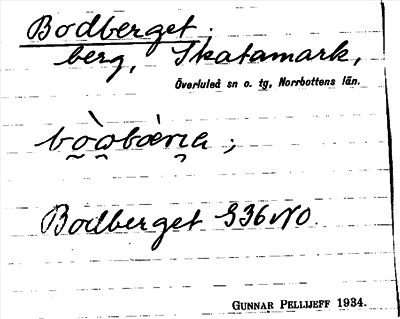 Bodberget.
berg, Skatamark,
Överluleå sn o. tg, Norrbottens län.
Bodberget S36NO.
GUNNAR PELLIJEFF 1934.